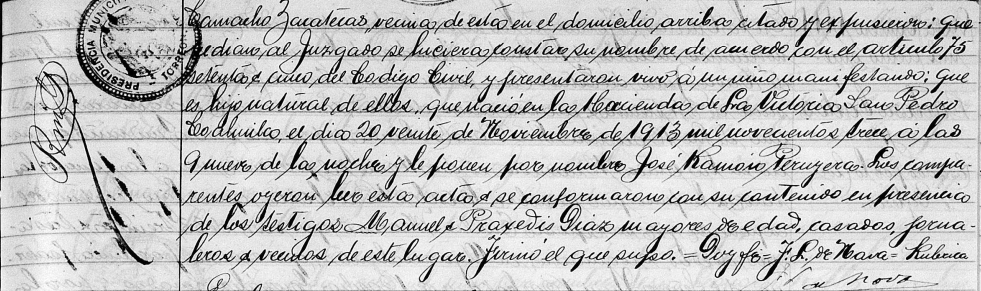 PRESIDENCIA MUNICIPAL
TORREON
Camacho Zacatecas, vecinos de esta en el domicilio arriba citado y expusieron: que
pedian al Juzgado se hiciera constar su nombre de acuerdo con el articulo 75
setenta & cinco del Codigo Civil, y presentaron vivo á un niño manifestando; que
es hijo natural de ellos, que nació en la Hacienda de La Victoria San Pedro
Coahuila, el dia 20 veinte de Noviembre de 1913 mil novecientos trece, á las
9 nueve de la noche y le ponen por nombre José Ramón Peruyera. Los compa-
rentes oyeron leer esta acta & se conformaron con su contenido en presencia
de los testigos Manuel & Praxedis Diaz mayores de edad, casados, jorna-
leros & vecinos de este lugar. Firmó el que supo. = Doy fe = J. L. de Nava = Rubrica
de Nava